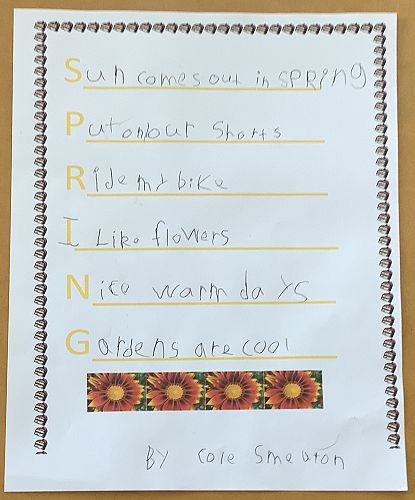 Sun comes out in SPRiNg
Put on our Shorts
Ride my bike
I Like flowers
Nice warm days
Gardens are cool
BY Cole Smeaton